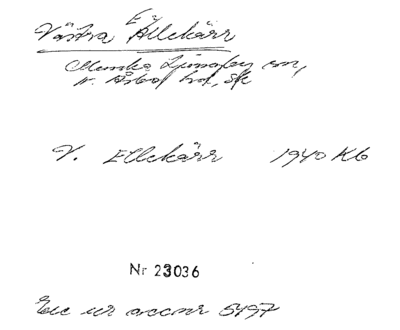 Västra Ellekärr
Munka Ljungby sn,
N. Åsbo hd, Sk
V. Ellekärr 1940 Kb
Nr 23036
Exc ur accnr 5497